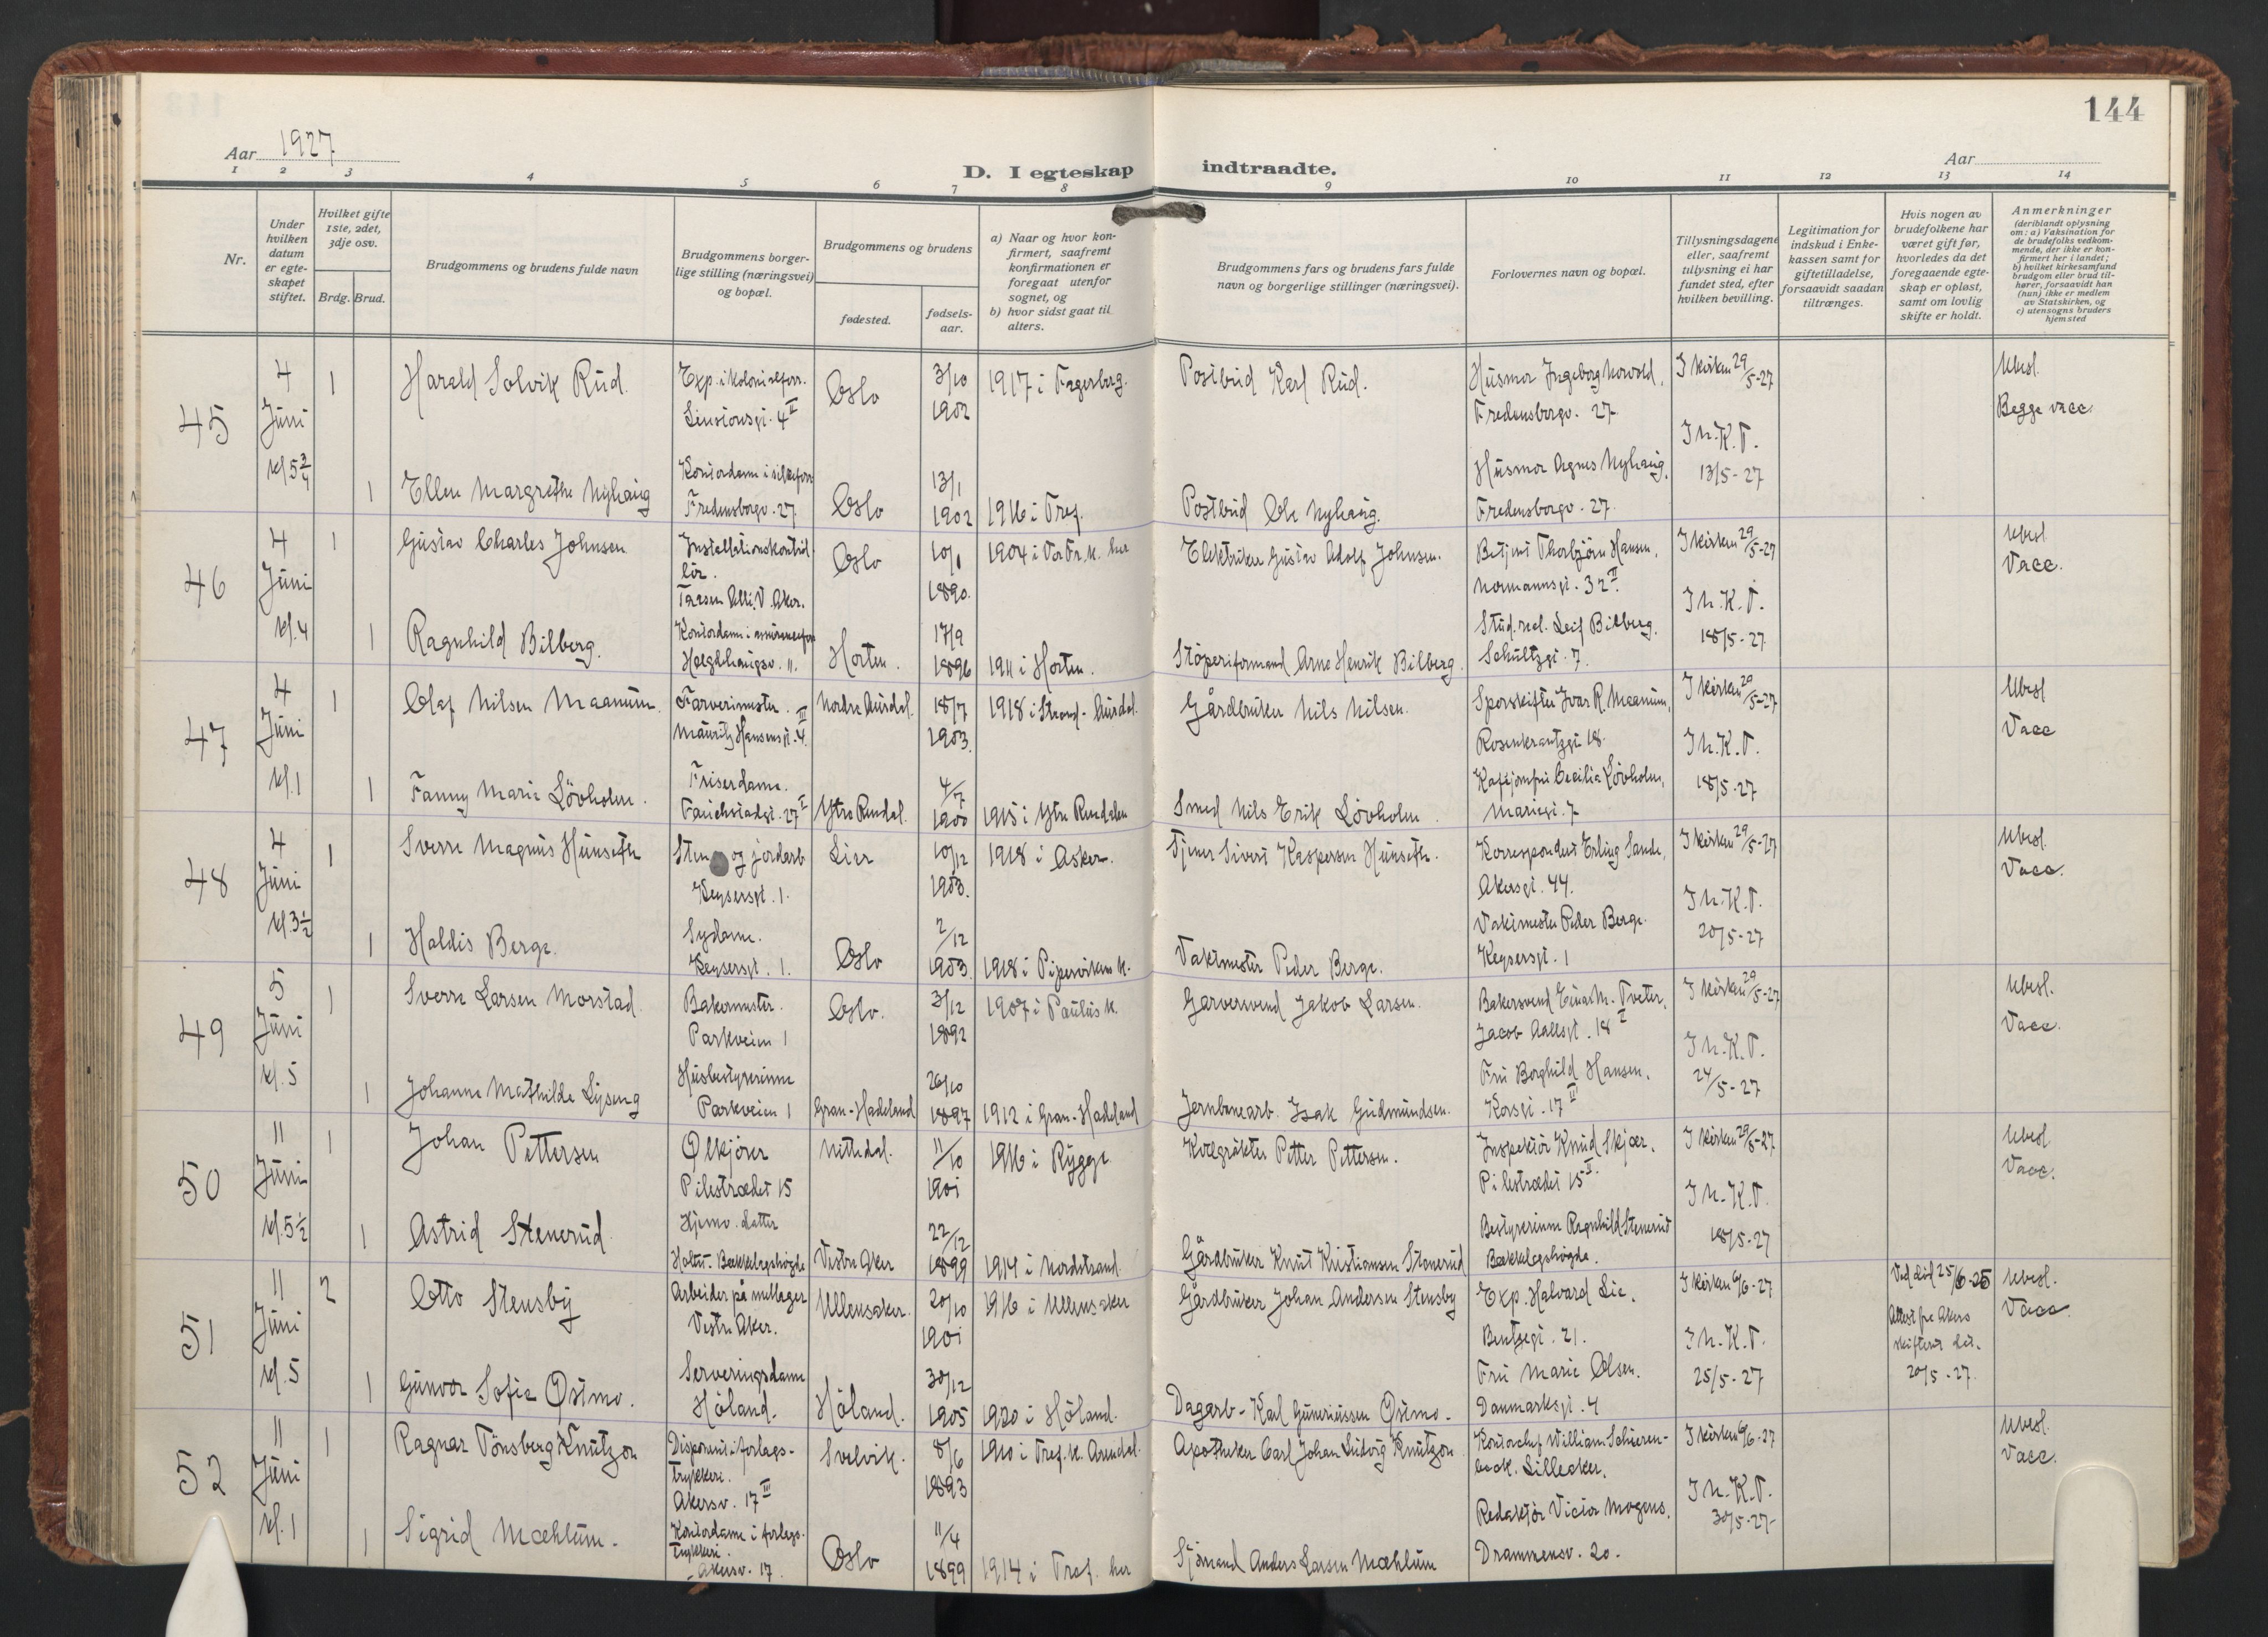 144
Aar 1927
D. I egteskap indtraadte.
Aar
1 2 3 4 5 6 7 8 9 10 11 12 13 14
Nr.
Under hvilken datum er egteskapet stiftet.
Hvilket gifte 1ste, 2det, 3dje osv.
Brdg. Brud.
Brudgommens og brudens fulde navn
Brudgommens borgerlige stilling (næringsvei) og bopæl.
Brudgommens og brudens
fødested.
fødselsaar.
a) Naar og hvor konfirmert, saafremt konfirmationen er foregaat utenfor sognet, og
b) hvor sidst gaat til alters.
Brudgommens fars og brudens fars fulde navn og borgerlige stillinger (næringsvei).
Forlovernes navn og bopæl.
Tillysningsdagene eller, saafremt tillysning ei har fundet sted, efter hvilken bevilling.
Legitimation for indskud i Enkekassen samt for giftetilladelse, forsaavidt saadan tiltrænges.
Hvis nogen av brudefolkene har været gift før, hvorledes da det foregaaende egteskap er opløst, samt om lovlig skifte er holdt.
Anmerkninger
(deriblandt oplysning om: a) Vaksination for de brudefolks vedkommende, der ikke er konfirmert her i landet; b) hvilket kirkesamfund brudgom eller brud tilhører, forsaavidt han (hun) ikke er medlem av Statskirken, og c) utensogns bruders hjemsted
45 4 Juni kl 5 3/4
1 Harald Solvik Rud. Exp. i kolonialforr. 4 II Oslo 3/10 1902 1917 i Fagerborg. Postbud Karl Rud. Husmor Ingeborg Norvold, Fredensborgv. 27 I kirken 29/5-27 Ubesl. Begge vacc.
I h. K. T. 13/5-27
1 Ellen Margrethe Nyhaug Kontordame i Fredensborgv. 27 Oslo 13/1 1902 1916 i Tref. Postbud Ole Nyhaug. Husmor Agnes Nyhaug, Fredensborgv. 27.
46 4 Juni kl. 4
1 Gustav Charles Johnsen Installationskontrollør. V. Aker. Oslo 10/1 1890. 1904 i Vor Fr. K. her Elektriker Gustav Adolf Johnsen. Betjent Thorbjørn Hansen, Normannsgt. 32 II. I kirken 29/5-27 Ubesl Vacc.
I h. K. T. 18/5-27
1 Ragnhild Bilberg. Kontordame i Hægdehaugsv. 11. Horten. 17/9 1896 1911 i Horten. Støperiformand Arne Henrik Bilberg. Stud. real. Leif Bilberg. Schultzgt. 7.
47 4 Juni kl. 1
1 Olaf Nilsen Maanum. Farverimester. Mauritz Hansensgt. 4. III Nordre Aurdal. 18/7 1903. 1918 i Strand-Aurdal. Gårdbruker Nils Nilsen. Sporskifter Ivar R. Maanum, Rosenkrantzgt 18. I kirken 29/5-27 Ubesl Vacc
I h. K. T. 18/5-27
1 Fanny Marie Lövholm. Friserdame. Fauchaldsgt. 27 I Ytre Rendal. 4/7 1900 1915 i Ytre Rendalen Smed Nils Erik Lövholm. Kafejomfru Cecilia Lövholm, Mariegt. 7
48 4 Juni kl. 3 1/2
1 Sverre Magnus Hunseth Sten og jordarb Keysersgt. 1. Lier 10/12 1903. 1918 i Asker. Tjener Sivert Kaspersen Hunseth. Korrespondent Erling Sande, Akersgt. 44. I kirken 29/5-27 Ubesl. Vacc.
I h. K. T. 20/5-27
1 Haldis Berge. Sydame. Keysersgt. 1. Oslo 2/12 1903. 1918 i Pipervikens K. Vaktmester Peder Berge. Vaktmester Peder Berge. Keysersgt. 1
49 5 Juni kl. 5
1 Sverre Larsen Morstad. Bakermester. Parkveien 1 Oslo. 3/12 1892 1907 i Paulus K. Garversvend Jakob Larsen. Bakersvend Einar M. Tveter, Jacob Aallsgt. 18 I I kirken 29/5-27 Ubesl. Vacc.
I h. K. T. 24/5-27
1 Johanne Mathilde Lyseng Husbestyrerinne Parkveien 1 Gran-Hadeland 26/10 1897 1912 i Gran-Hadeland Jernbanearb. Isak Gudmundsen. Fru Borghild Hansen, Korsgt. 17 II
50 11 Juni kl. 5 1/2
1 Johan Pettersen Ølkjører Pilestrædet 15 Nittedal. 11/10 1901 1916 i Rygge Kvægrøkter Petter Pettersen. Inspektør Knud Skjær, Pilestrædet 15 II. I kirken 29/5-27 Ubesl. Vacc.
I h. K. T. 18/5-27
1 Astrid Stenerud Hjemv. datter Bækkelagshøgda Vestre Aker 22/12 1899 1914 i Nordstrand. Gårdbruker Knut Kristiansen Stenerud Bestyrerinne Ragnhild Stenerud Bækkelagshøgda.
51 11 Juni kl. 5
2 Otto Stensby Arbeider på Vestre Aker. Ullensaker. 20/10 1901 1916 i Ullensaker Gårdbruker Johan Andersen Stensby Exp. Halvard Lie, Bentsegt. 21. I kirken 6/6-27 Ved død 25/6-25 Attest fra Akers skifterett dat. 20/5-27. Ubesl. Vacc.
I h. K. T. 25/5-27
1 Gunvor Sofie Østmo. Serveringsdame Høland. Høland. 30/12 1905 1920 i Høland. Dagarb. Karl Guneriussen Østmo. Fru Marie Olsen. Danmarksgt. 4
52 11 Juni kl. 1
1 Ragnar Tönsberg Knutzon Disponent i forlagstrykkeri. Akersv. 17 III Svelvik. 8/6 1893 1910 i Tref. K. Arendal. Apotheker Carl Johan Ludvig Knutzon Kontorchef William Lilleaker. I kirken 6/6-27 Ubesl. Vacc.
I h. K. T. 30/5-27
1 Sigrid Mæhlum. Kontordame i forlagstrykkeri. Akersv. 17 Oslo 11/4 1899 1914 i Tref. her Sjømand Anders Larsen Mæhlum Redaktør Victor Mogens, Drammensv. 20.